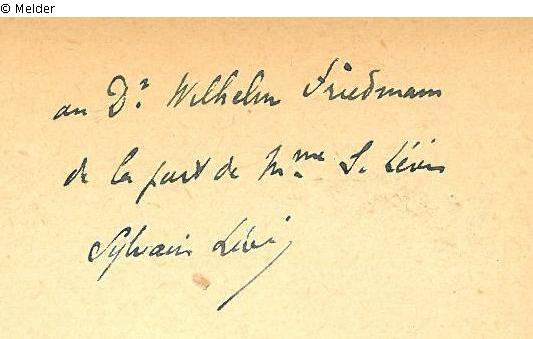 © Melder
au Dr. Wilhelm Friedmann
de la part de Mme S. Lévi
Sylvain Lévi